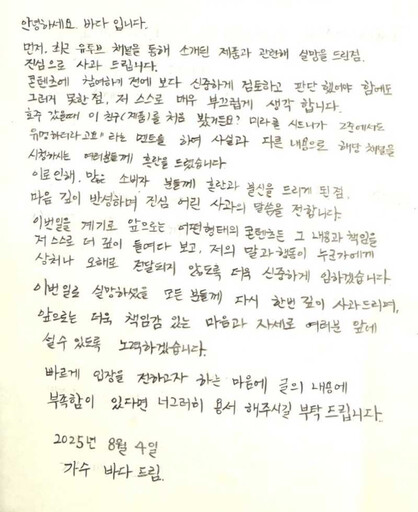 안녕하세요. 바다 입니다.
먼저, 최근 유튜브 채널을 통해 소개된 제품과 관련해 실망을 드린점.
진심으로 사과 드립니다.
콘텐츠에 참여하기 전에 보다 신중하게 검토하고 판단 했어야 함에도
그러지 못한 점, 저 스스로 매우 부끄럽게 생각 합니다.
호주 갔을때 이 친구(제품)를 처음 봤거든요? 미라클 시드니가 2존에서도
유명하더라고요" 라는 멘트을 하여 사실과 다른 내용으로 해당 채널을
시청하시는 여러분들께 혼란을 드렸습니다
이로 인해, 많은 소비자 분들께 혼란과 불신을 드리게 된 점.
마음 깊이 반성하며 진심 어린 사과의 말씀을 전합니다.
이번일을 계기로 앞으로는 어떤형태의 콘텐츠든 그 내용과 책임을
저 스스로 더 깊이 들여다 보고, 저의 말과 행동이 누군가에게
상처나 오해로 전달되지 않도록 더욱 신중하게 임하겠습니다
이번 일로 실망하셨을 모든 분들께 다시 한번 깊이 사과드리며,
앞으로는 더욱 책임감 있는 마음과 자세로 여러분 앞에
설수 있도록 노력하겠습니다.
빠르게 입장을 전하고자 하는 마음에 글의 내용에
부족함이 있다면 너그러히 용서 해주시길 부탁 드립니다.
2025년 8월 4일
가수 바다 드림.